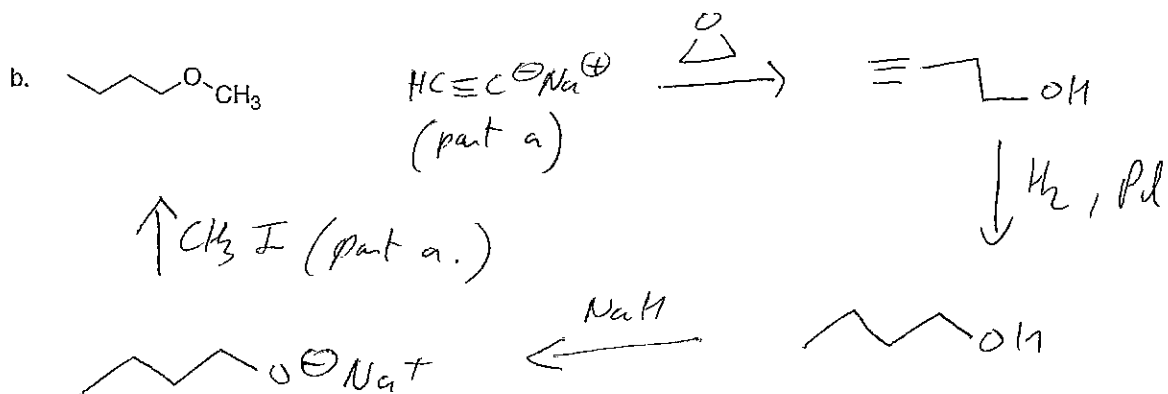 b.
O
CH3
HC≡C⊖Na⊕
(part a)
O
OH
H2, Pd
CH3 I (part a.)
NaH
O⊖Na+
OH